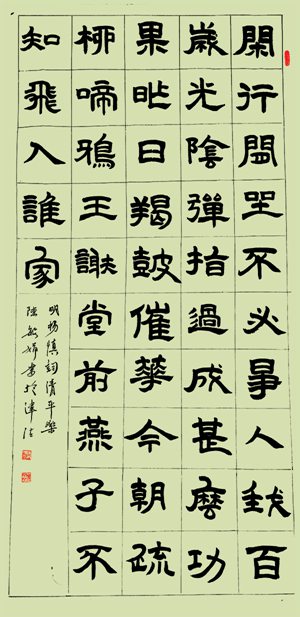 閑行閒坐不必爭人我百
歲光陰彈指過成甚麼功
果昨日羯鼓催華今朝疏
柳啼鴉王謝堂前燕子不
知飛入誰家
明楊慎詞清平樂
書於津沽